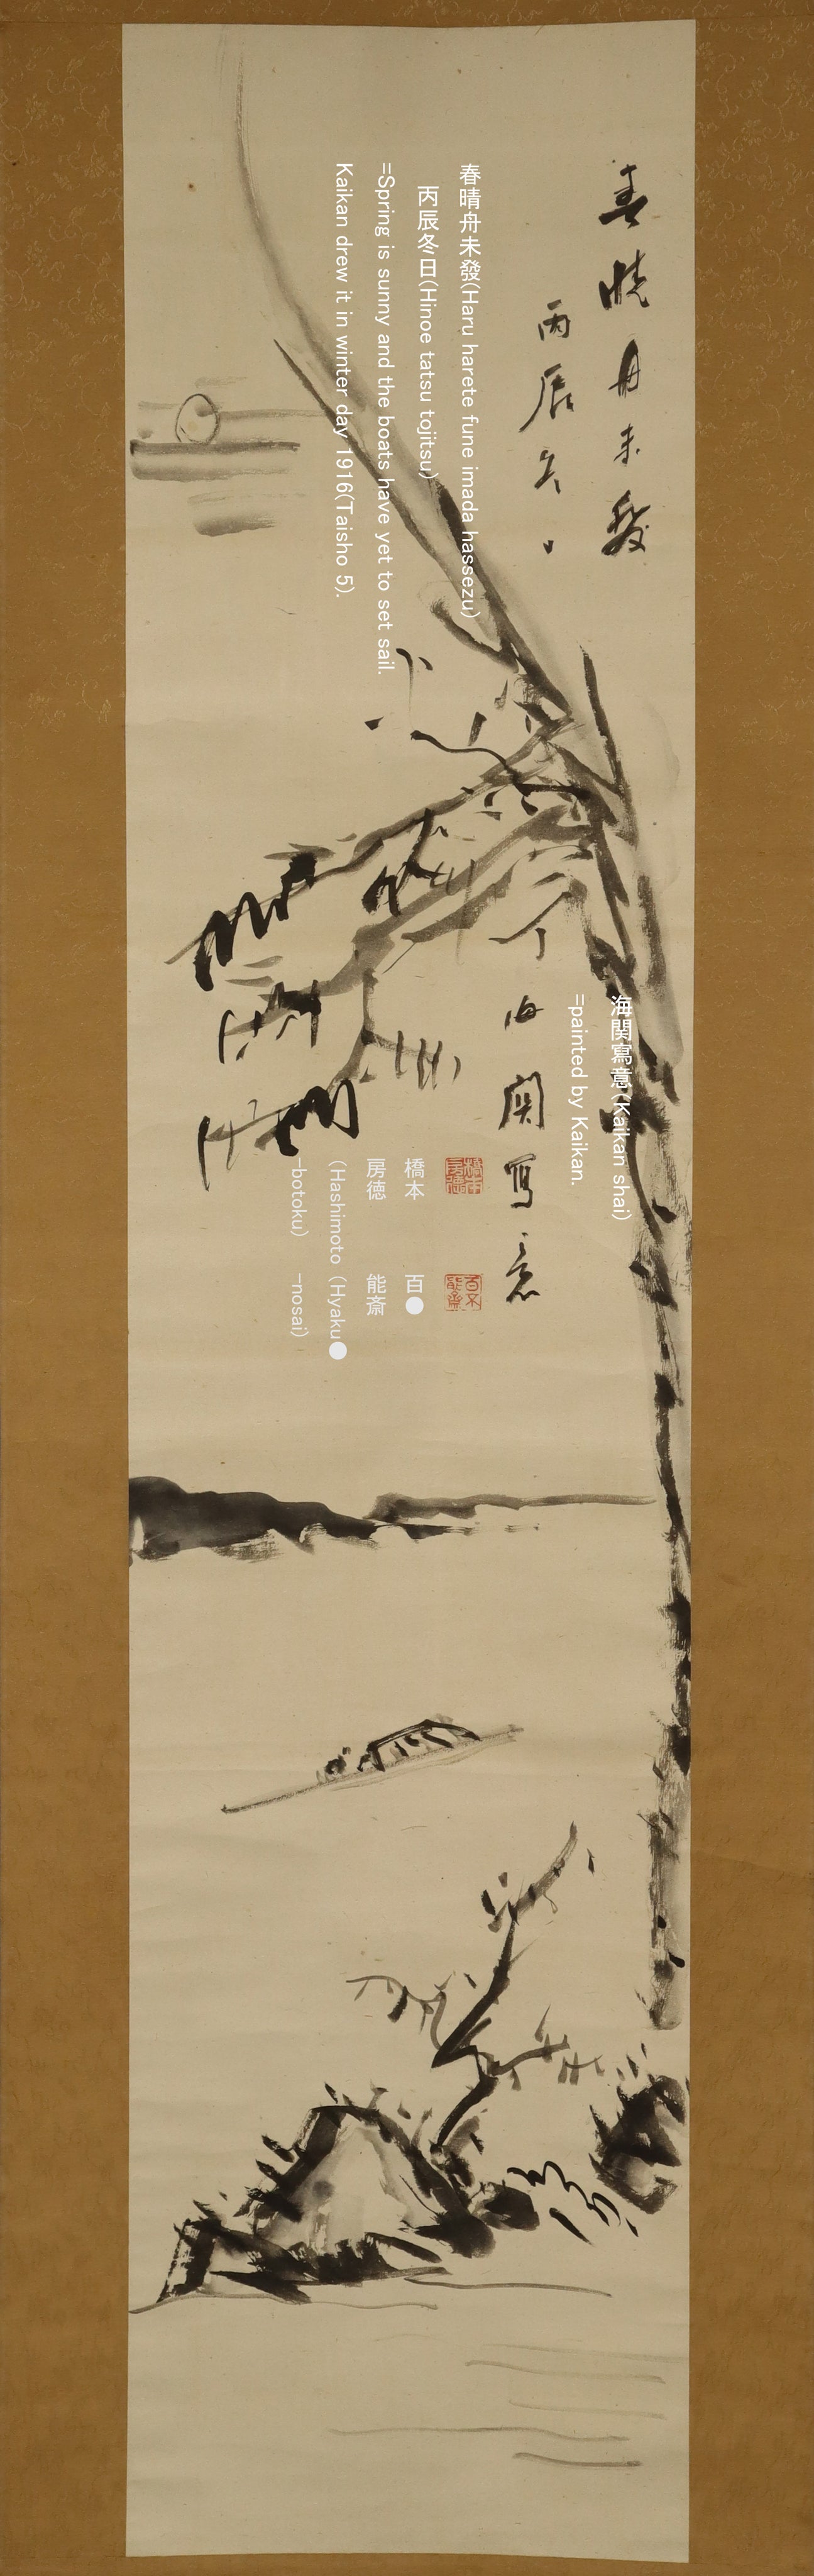 春暁舟未發
丙辰冬日
春晴舟未發(Haru harete fune imada hassezu)
丙辰冬日(Hinoe tatsu tojitsu)
=Spring is sunny and the boats have yet to set sail.
Kaikan drew it in winter day 1916(Taisho 5).
海関寫意(Kaikan shai)
=painted by Kaikan.
海関寫意
橋本
房徳
百不
能齋
橋本
房徳
(Hashimoto
–botoku)
百●
能斎
(Hyaku●
–nosai)